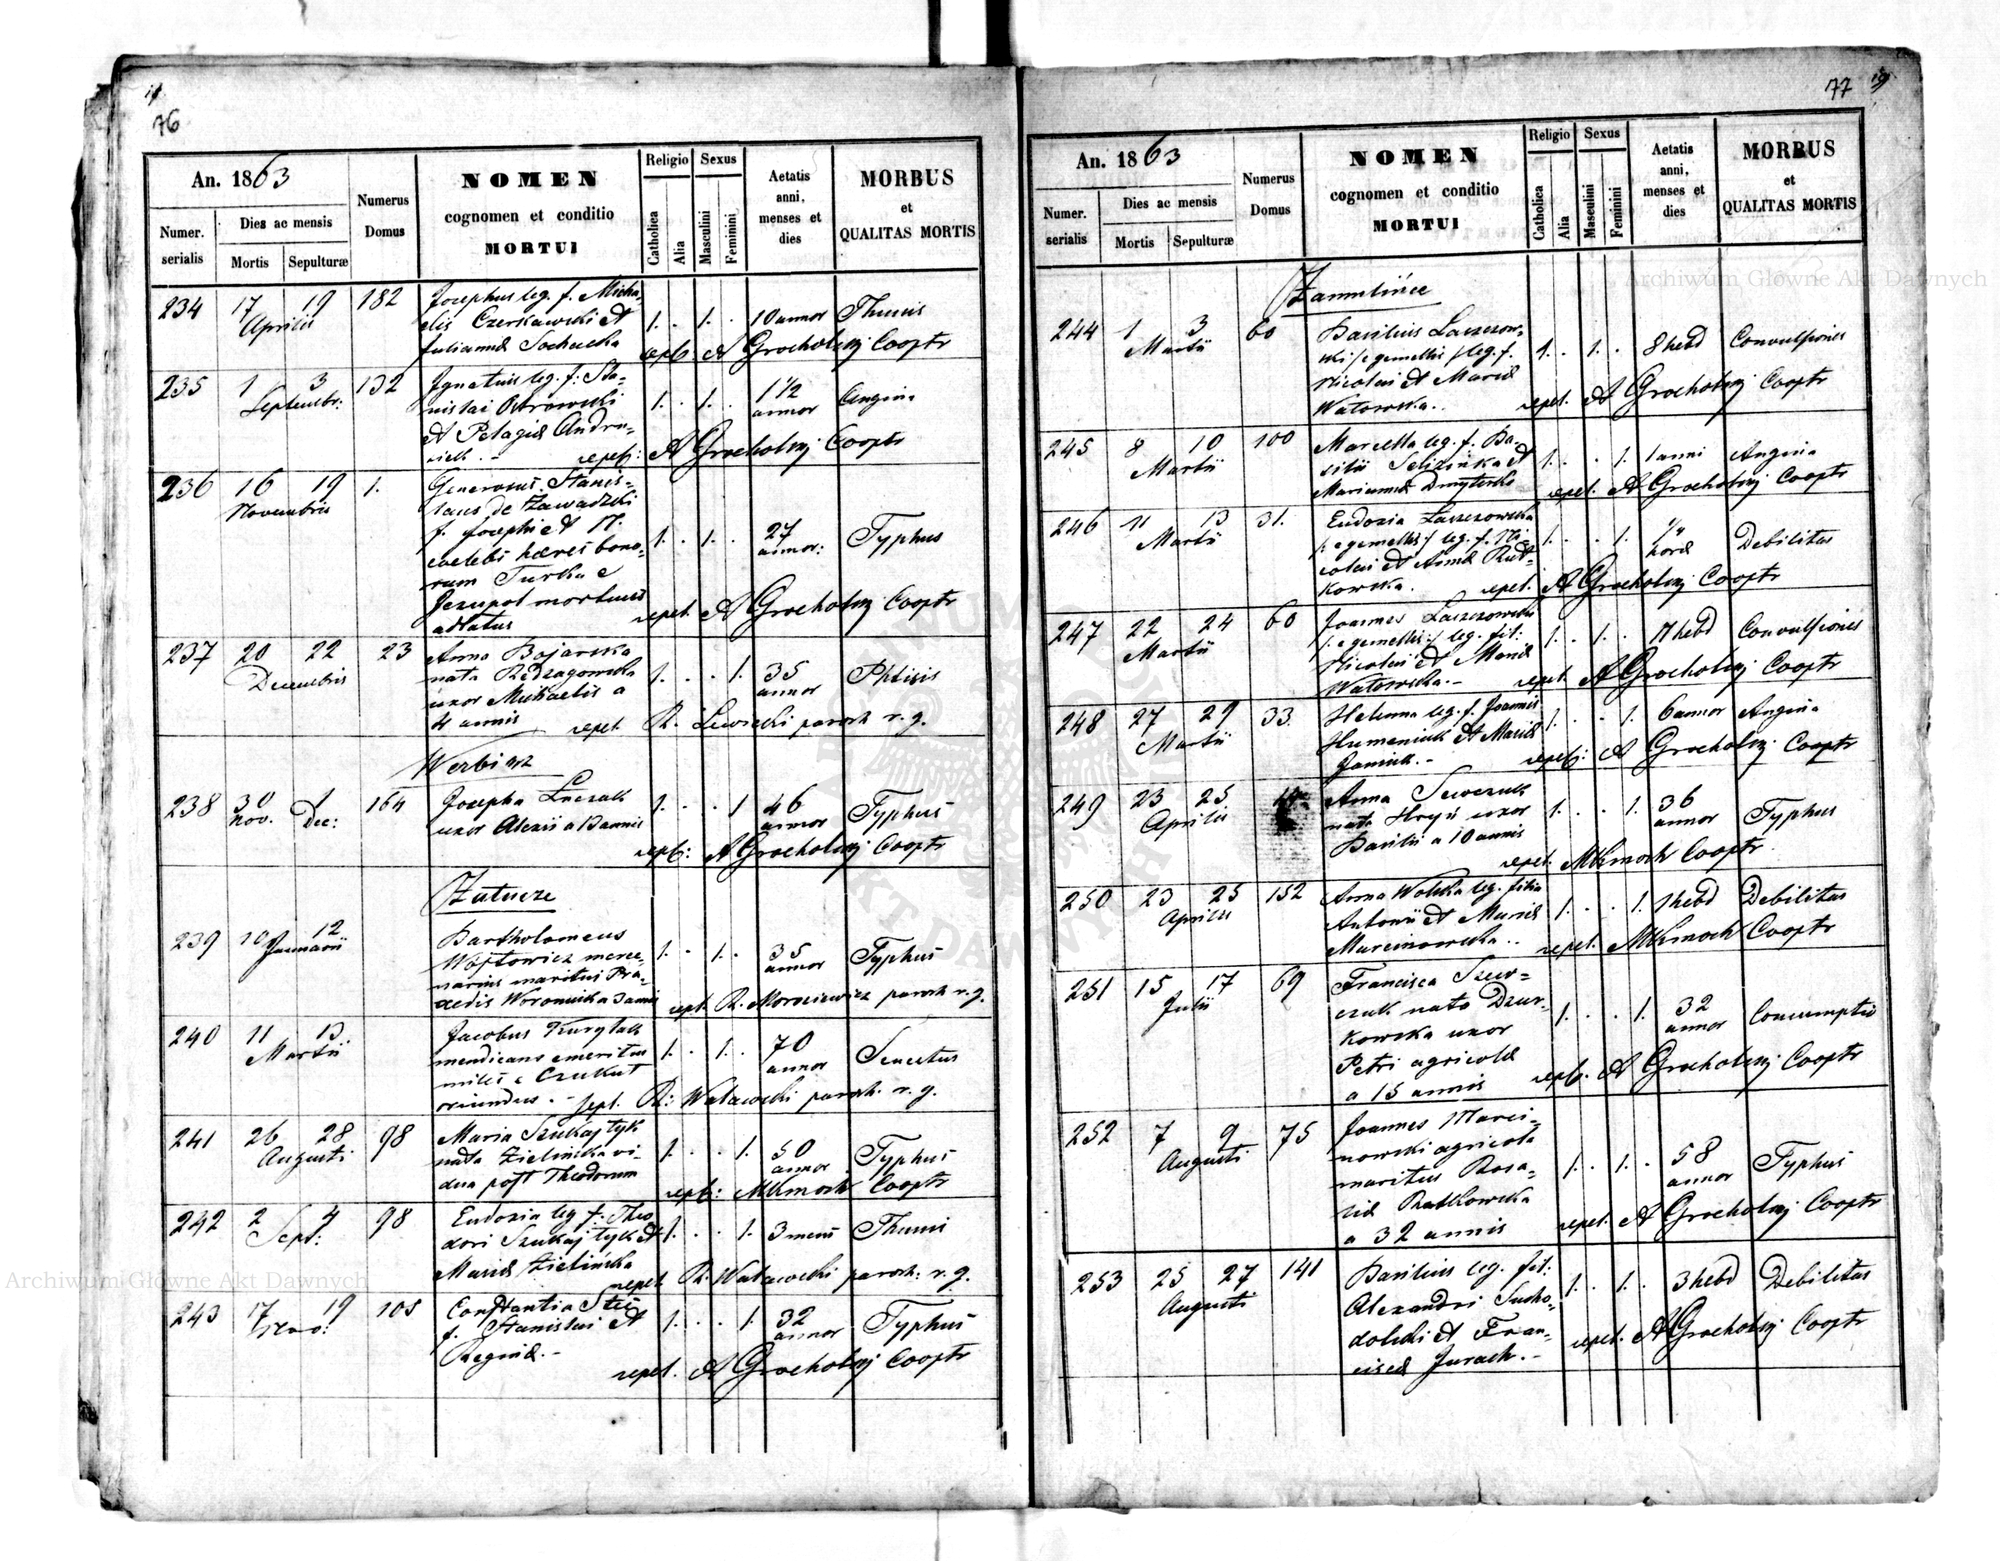 76
An. 1863
Numer. serialis
Dies ac mensis
Mortis
Sepulturæ
Numerus Domus
NOMEN
cognomen et conditio
MORTUI
Religio
Catholica
Alia
Sexus
Masculini
Feminini
Aetatis
anni,
menses et
dies
MORBUS
et
QUALITAS MORTIS
234 17 19 Aprilis 182
Josephus leg. f. Micha-
elis Czerkawski et
Julianna
1. 1. 10 annor
repet. A Grocholski Cooptr
235 1 3 Septembr: 132
Ignatius leg. f. Sta-
nislai Ostrowski
et Pelagiæ Andru-
1. 1. 1 1/2 annor Angina
repet: A Grocholski Cooptr
236 16 19 Novembris 1.
Generosus Stanis-
laus de Zawadzki
f. Josephi et N.
caelebs hæres bono-
rum Turka e
Jezupol mortuus
adlatus
1. 1. 27 annor: Typhus
repet. A Grocholski Cooptr
237 20 22 Decembris 23
Anna Bojarska
nata
uxor Michaelis a
4 annis
1. 1. 35 annor Phtisis
repet R. Lewicki paroch r. g.
Werbiąż
238 30 Nov. 1 Dec: 164
Josepha Łuczak
uxor Alexii a annis
1. 1 46 annor Typhus
repet: A Grocholski Cooptr
239 10 12 Januarii
Bartholomeus
Wojtowicz merce-
narius maritus Pra-
xedis
1. 1. 35 annor Typhus
repet. R. Morosiewicz paroch r. g.
240 11 13 Martii
Jacobus
mendicans emeritus
miles e
oriundus. -
1. 1. 70 annor Senectus
sepel. R: paroch. r. g.
241 26 28 Augusti 98
Maria Szukajtyk
nata Zielińska vi-
dua post Theodorum
1. 1. 50 annor Typhus
repet: Cooptr
242 2 4 Sept: 98
Eudoxia leg f. Theo
dori Szukajtyk et
Mariæ Zielińska
1. 1. 3 mens
repet R. paroch: r. g.
243 17 19 105
Constantia
f. Stanislai et
Reginæ. -
1. 1. 32 annor Typhus
repet. A Grocholski Cooptr
77
An. 1863
Numer. serialis
Dies ac mensis
Mortis
Sepulturæ
Numerus Domus
NOMEN
cognomen et conditio
MORTUI
Religio
Catholica
Alia
Sexus
Masculini
Feminini
Aetatis
anni,
menses et
dies
MORBUS
et
QUALITAS MORTIS
Zamulińce
244 1 3 Martii 60
Basilius Laszzow-
ski /:e gemellis:/ leg. f.
Nicolai et Mariæ
Watowska..
1. 1. 8 hebd Convulsiones
repet. A Grocholski Cooptr
245 8 10 Martii 100
Marcella leg. f. Ba-
silii et
Mariannæ
1. 1. 1 anni Angina
repet. A Grocholski Cooptr
246 11 13 Martii 31.
Eudoxia
/:e gemellis:/ leg. f. Ni-
colai et Annæ Rud-
kowska.
1. 1. 1/4 horæ Debilitas
repet. A Grocholski Cooptr
247 22 24 Martii 60
Joannes
/:e gemellis:/ leg. fil:
Nicolai et Mariæ
Watowska. -
1. 1. 11 hebd Convulsiones
repet. A Grocholski Cooptr
248 27 29 Martii 33.
Helena leg. f. Joannis
Humeniuk et Mariæ
1. 1. 6 annor Angina
repet: A Grocholski Cooptr
249 23 25 Aprilis
Anna Szewczuk
nata uxor
Basilii a 10 annis
1. 1. 36 annor Typhus
repet. Cooptr
250 23 25 Aprilis 152
Anna Wolska leg. filia
Antonii et Mariæ
Marcinowska..
1. 1. 1 hebd Debilitas
repet. Cooptr
251 15 17 Julii 69
Francisca Szew-
czuk nata Dzur-
kowska uxor
Petri agricolæ
a 15 annis
1. 1. 32 annor Consumptio
repet. A Grocholski Cooptr
252 7 9 Augusti 75
Joannes Marci-
nowski agricola
maritus Rosa-
liæ Rudkowska
a 32 annis
1. 1. 58 annor Typhus
repet. A Grocholski Cooptr
253 25 27 Augusti 141
Basilius leg. fil:
Alexandri Sucho-
dolski et Fran-
ciscæ Jurach. -
1. 1. 3 hebd Debilitas
repet. A Grocholski Cooptr
Archiwum Główne Akt Dawnych
Archiwum Główne Akt Dawnych